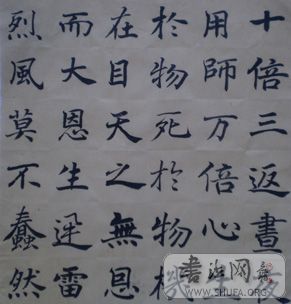 十倍三返晝
用師万倍心
於物死於物
在目天之無恩
而大恩生迅雷
烈風莫不蠢然
書法网
SHUFA.ORG